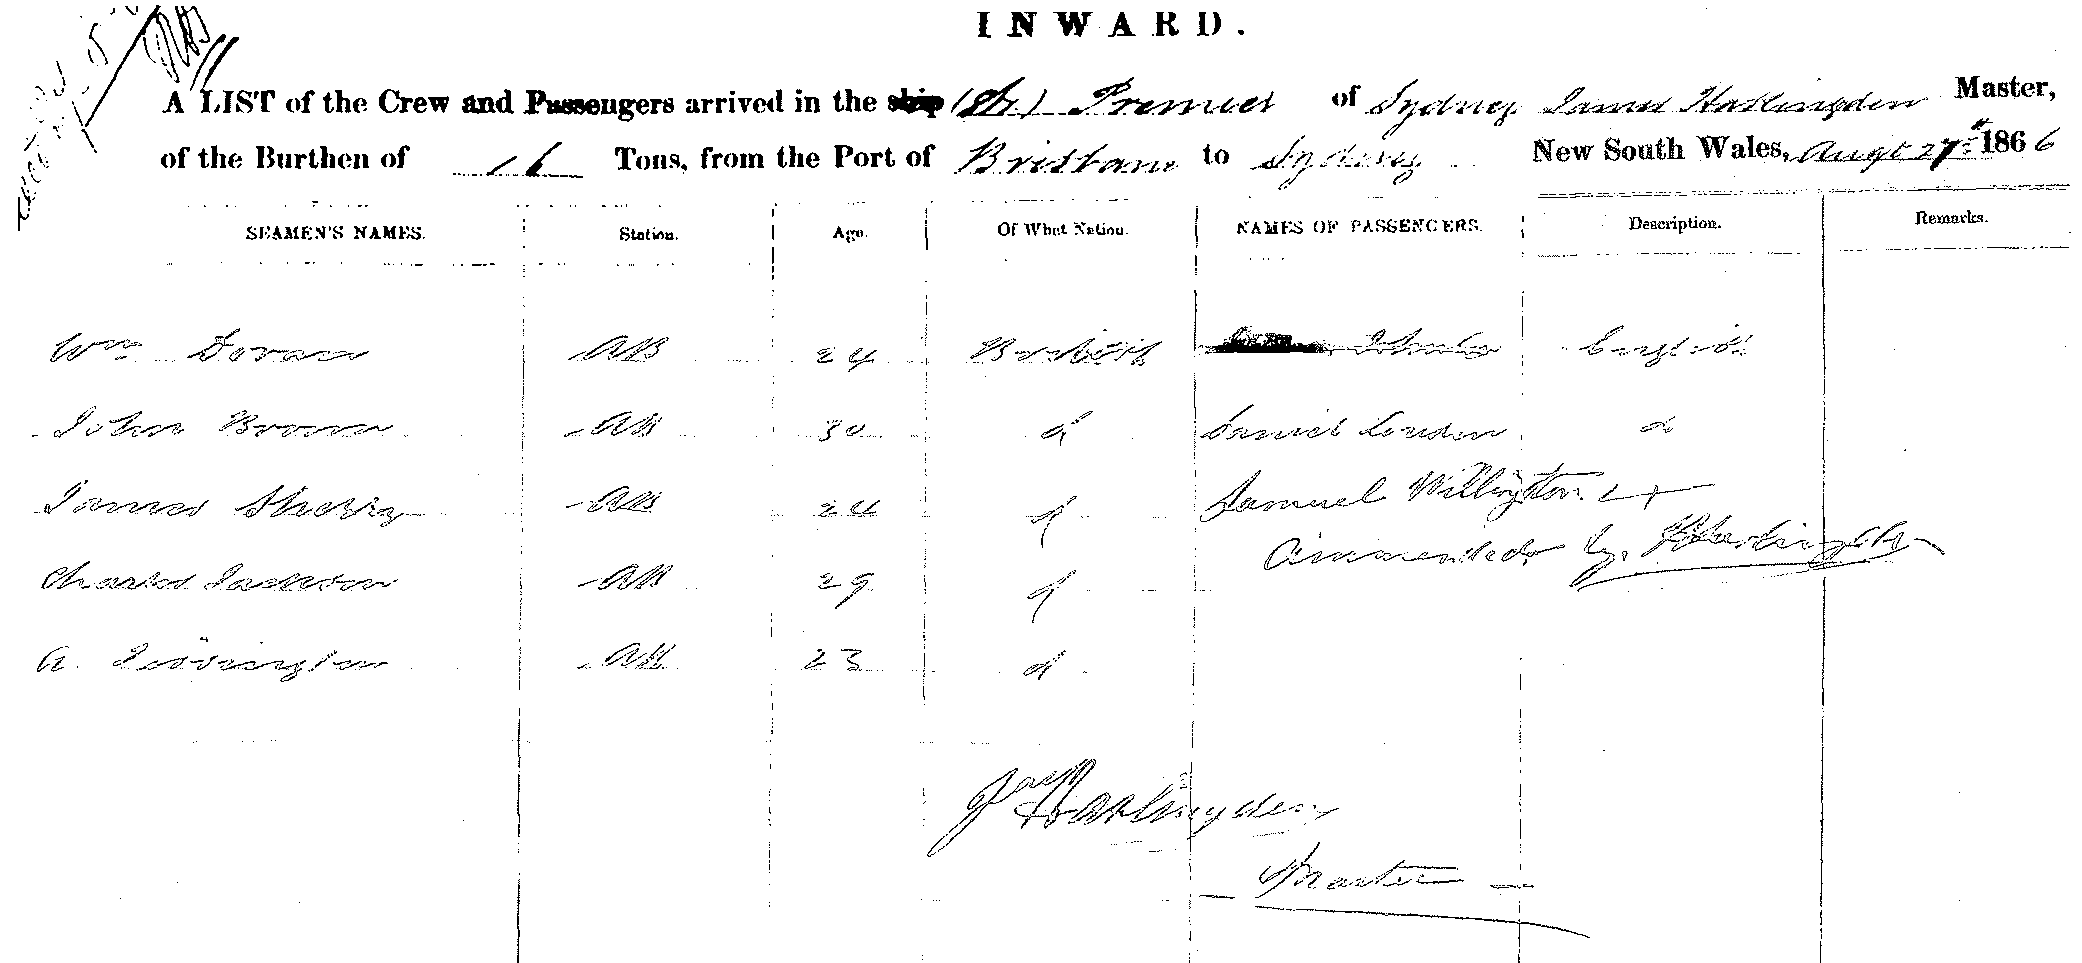 INWARD.
A LIST of the Crew and Passengers arrived in the ship Premier of Sydney James Haslingden Master,
of the Burthen of 16 Tons, from the Port of Brisbane to Sydney New South Wales, Augt 27th 1866
SEAMEN'S NAMES. Station. Age. Of What Nation. NAMES OF PASSENGERS. Description. Remarks.
Wm Doran AB 24 British English
John Brown AB 30 d Daniel d
James AB 24 d Samuel
by
Charles Jackson AB 29 d
A. AB 23 d
Jas Haslingden
Master